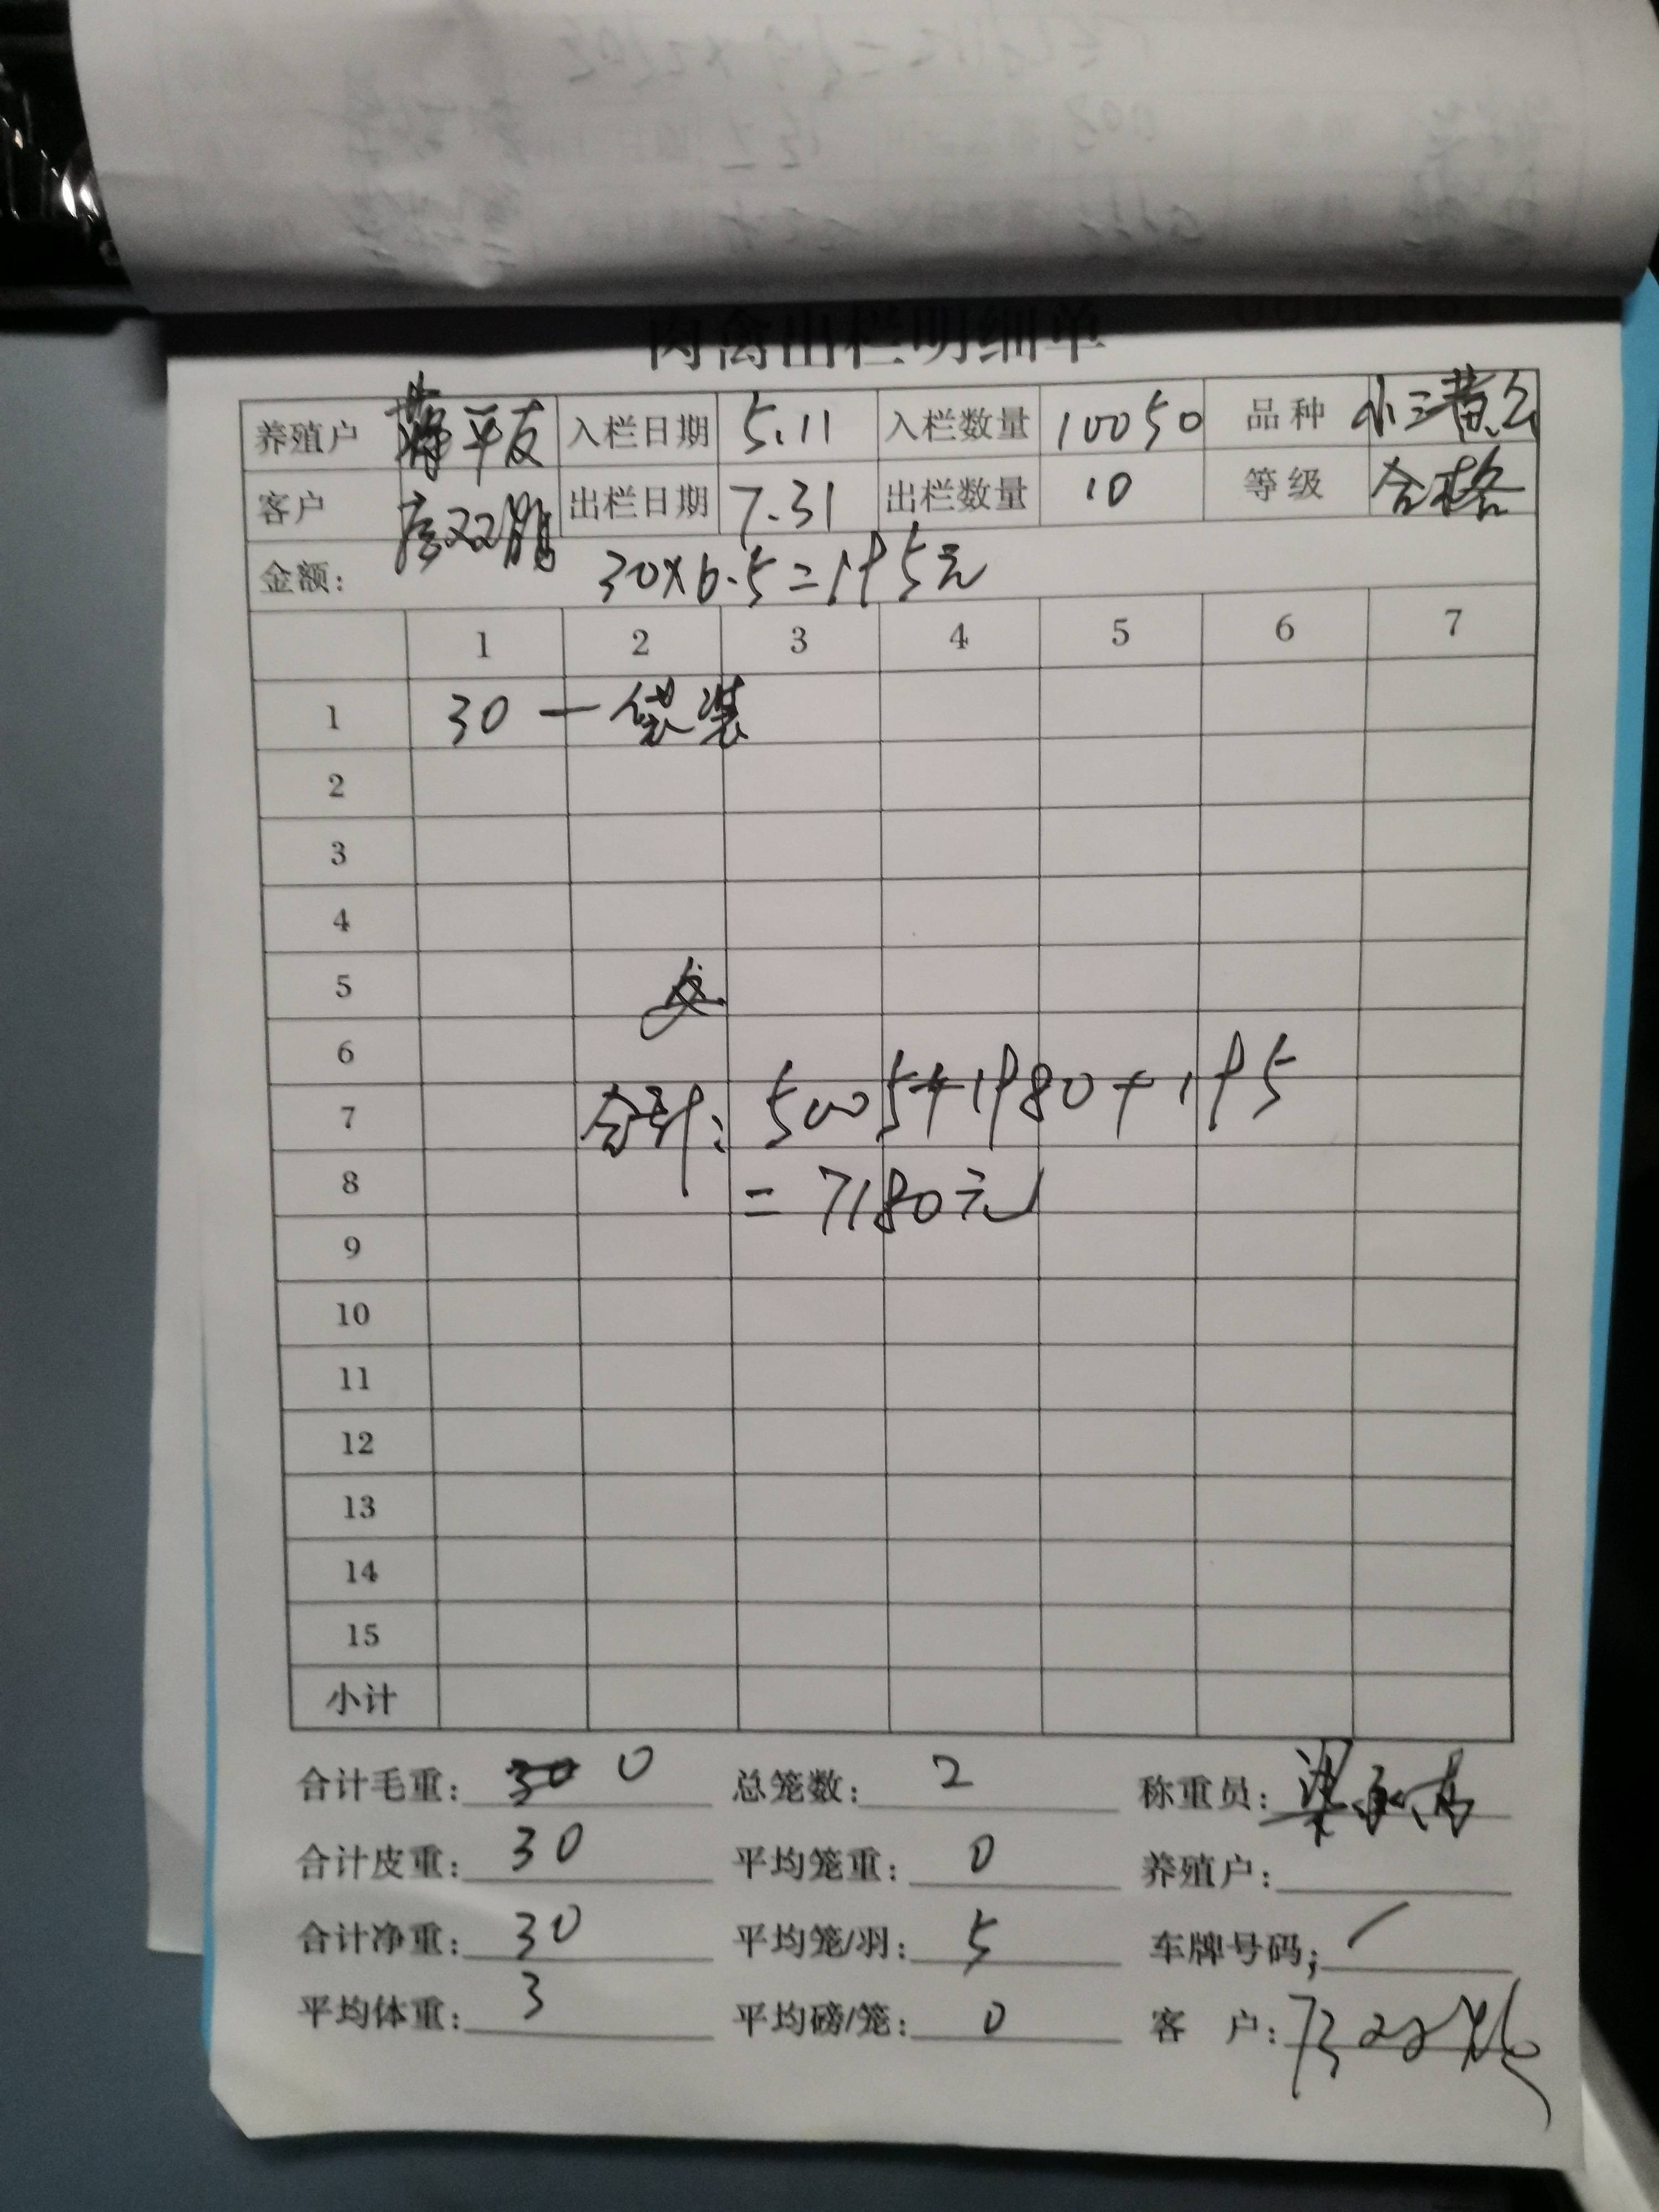 肉禽出栏明细单
养殖户 蒋平友 入栏日期 5.11 入栏数量 10050 品种 小三黄公
客户 出栏日期 7.31 出栏数量 10 等级 合格
金额: 30×6.5=195元
1 2 3 4 5 6 7
1 30 一 袋装
2
3
4
5
6
7 合计: 5005+1980+195
8 =7180元
9
10
11
12
13
14
15
小计
合计毛重: 0 总笼数: 2 称重员:
合计皮重: 30 平均笼重: 0 养殖户:
合计净重: 30 平均笼/羽: 5 车牌号码: /
平均体重: 3 平均磅/笼: 0 客 户: